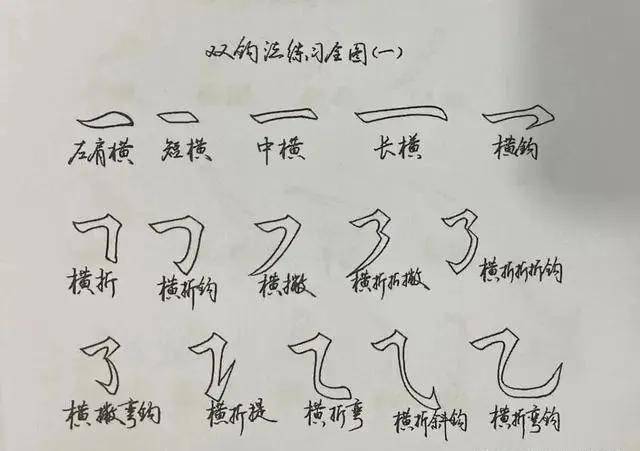 双钩法练习全图(一)
左肩横 短横 中横 长横 横钩
横折 横折钩 横撇 横折折撇 横折折折钩
横撇弯钩 横折提 横折弯 横折斜钩 横折弯钩